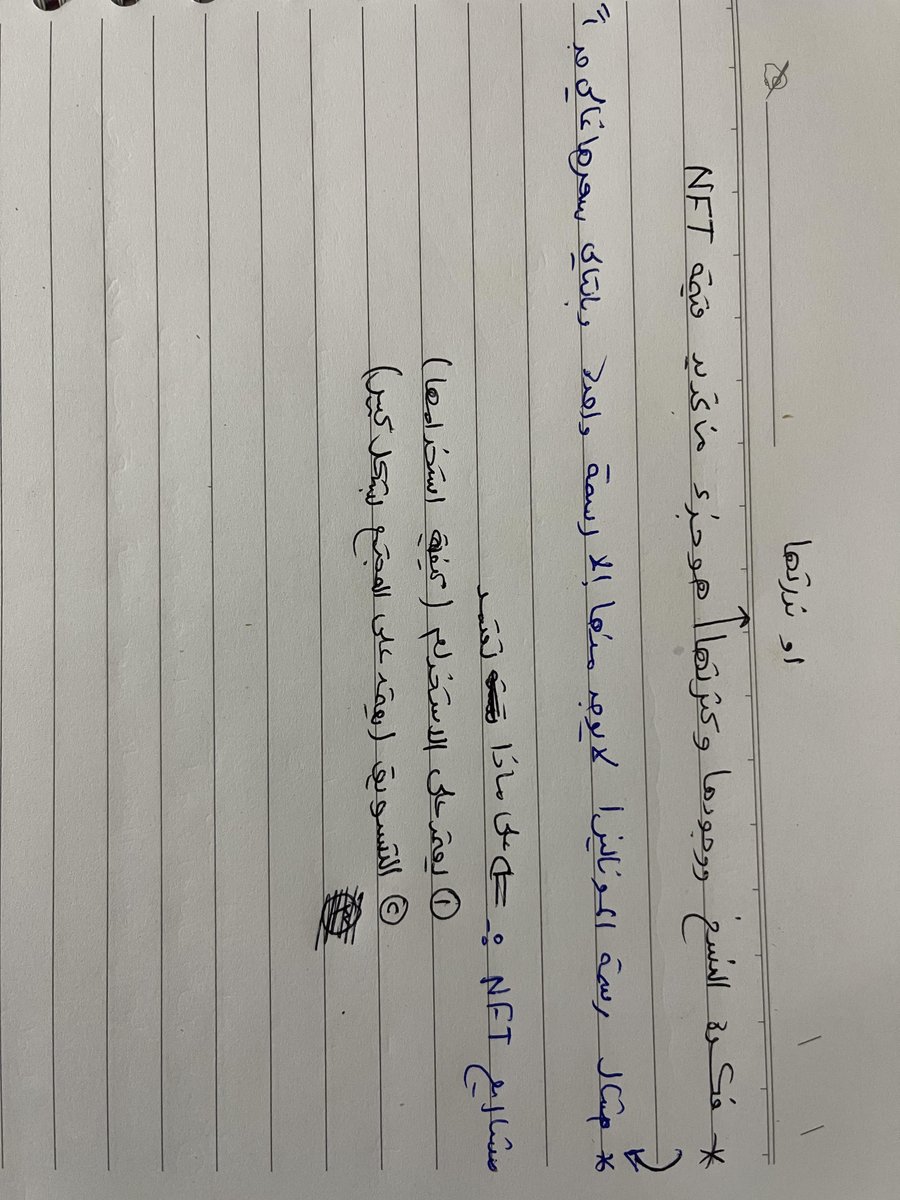 او ندرتها
* فكرة النسخ ووجودها وكثرتها هو جزء من تحديد قيمة NFT
* مثال رسمة الموناليزا لا يوجد منها إلا رسمة واحدة وبالتالي سعرها غالي جداً
مشاريع NFT :- على ماذا تعتمد
① يعتمد على الاستخدام (كيفية استخدامها)
② التسويق (يعتمد على المجتمع بشكل كبير)